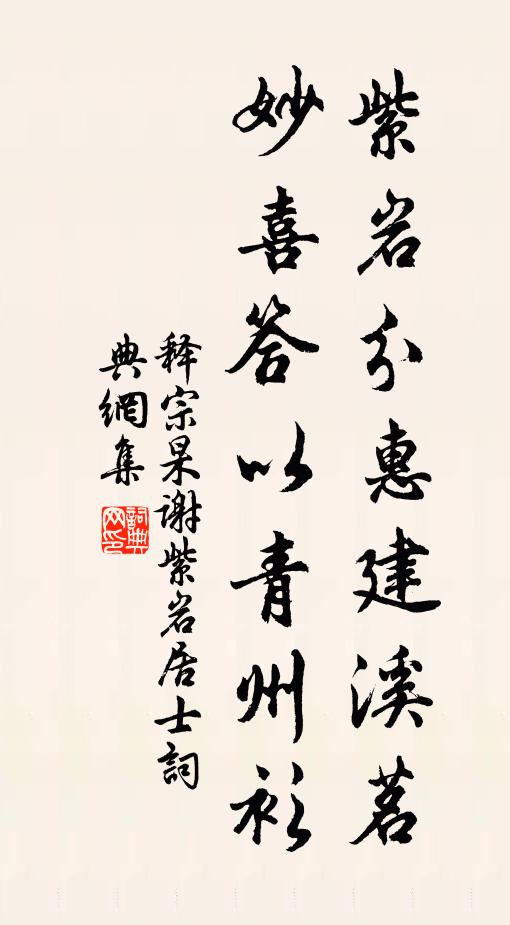 紫岩分惠建溪茗
妙喜答以青州衫
释宗杲谢紫岩居士詞
典網集
詞典网印